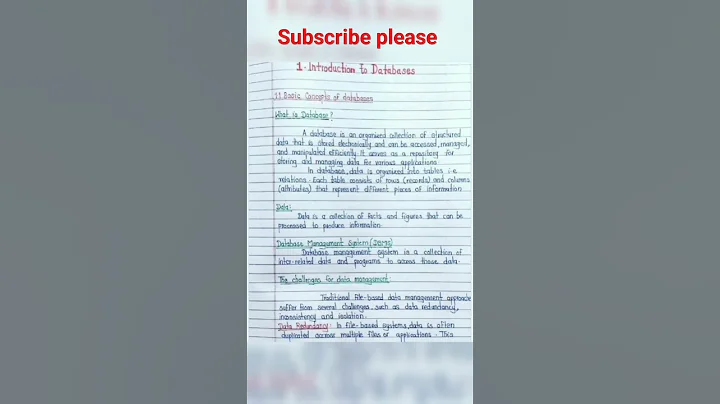 Subscribe please
1. Introduction to Databases
1.1 Basic Concepts of databases
What is Database?
A database is an organized collection of structured
data that is stored electronically and can be accessed, managed,
and manipulated efficiently. It serves as a repository for
storing and managing data for various applications.
In database, data is organized into tables i.e.
relations. Each table consists of rows (records) and columns
(attributes) that represent different pieces of information
Data:
Data is a collection of facts and figures that can be
processed to produce information.
Database Management System (DBMS)
Database management system is a collection of
inter-related data and programs to access those data.
The challenges for data management:
Traditional file-based data management approach
suffer from several challenges, such as data redundancy,
inconsistency and isolation.
Data Redundancy: In file-based systems, data is often
duplicated across multiple files or applications. This